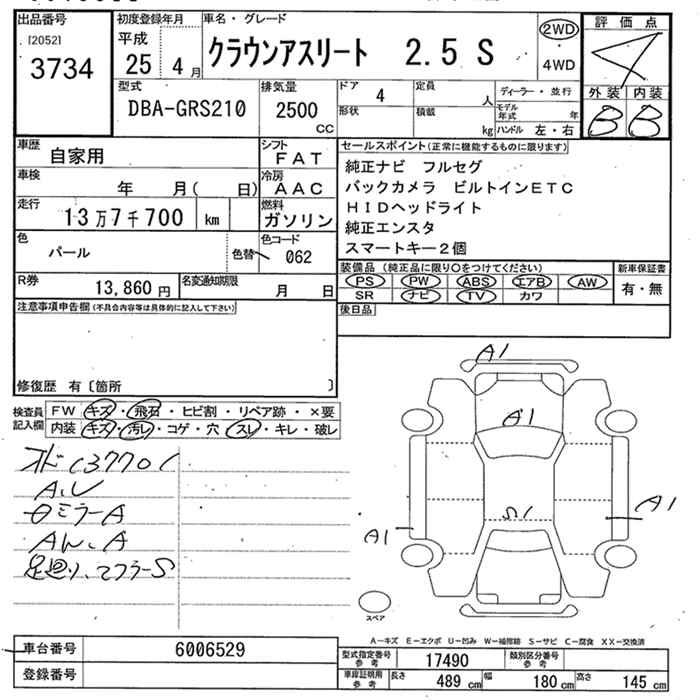 出品番号 初度登録年月 車名・グレード 評価点
[2052] 平成 クラウンアスリート 2.5 S 2WD
3734 25年 4月 ・ 4WD 4
型式 排気量 ドア 定員 ディーラー・並行 外装 内装
DBA-GRS210 2500 CC 4 人 モデル年式 年 B B
形状 積載 kg ハンドル 左・右
車歴 自家用 シフト FAT セールスポイント(正常に機能するものに限ります)
車検 年 月( 日) 冷房 AAC 純正ナビ フルセグ
走行 13万7千700 km 燃料 ガソリン バックカメラ ビルトインETC
HIDヘッドライト
純正エンスタ
スマートキー2個
色 パール 色替 色コード 062
装備品(純正品に限り○をつけてください) 新車保証書
R券 13,860円 名変通知期限 月 日 PS PW ABS エアB AW 有・無
SR ナビ TV カワ
注意事項申告欄(不具合内容等は具体的に記入して下さい) 後日品
修復歴 有〔箇所 〕
検査員記入欄 FW キズ・飛石・ヒビ割・リペア跡・×要
内装 キズ・汚レ・コゲ・穴・スレ・キレ・破レ
A1
A1
オド137701
A,U
ミラーA
A1
S1
A1
足廻り、マフラーS
スペア
A−キズ E−エクボ U−凹み W−補修跡 S−サビ C−腐食 XX−交換済
車台番号 6006529 型式指定番号 参考 17490 類別区分番号 参考
登録番号 車庫証明用 参考 長さ 489 cm 幅 180 cm 高さ 145 cm